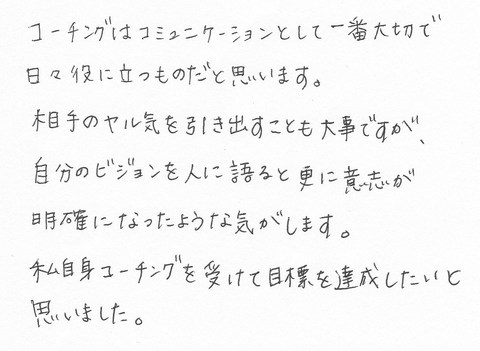 コーチングはコミュニケーションとして一番大切で
日々役に立つものだと思います。
相手のヤル気を引き出すことも大事ですが、
自分のビジョンを人に語ると更に意志が
明確になったような気がします。
私自身コーチングを受けて目標を達成したいと
思いました。